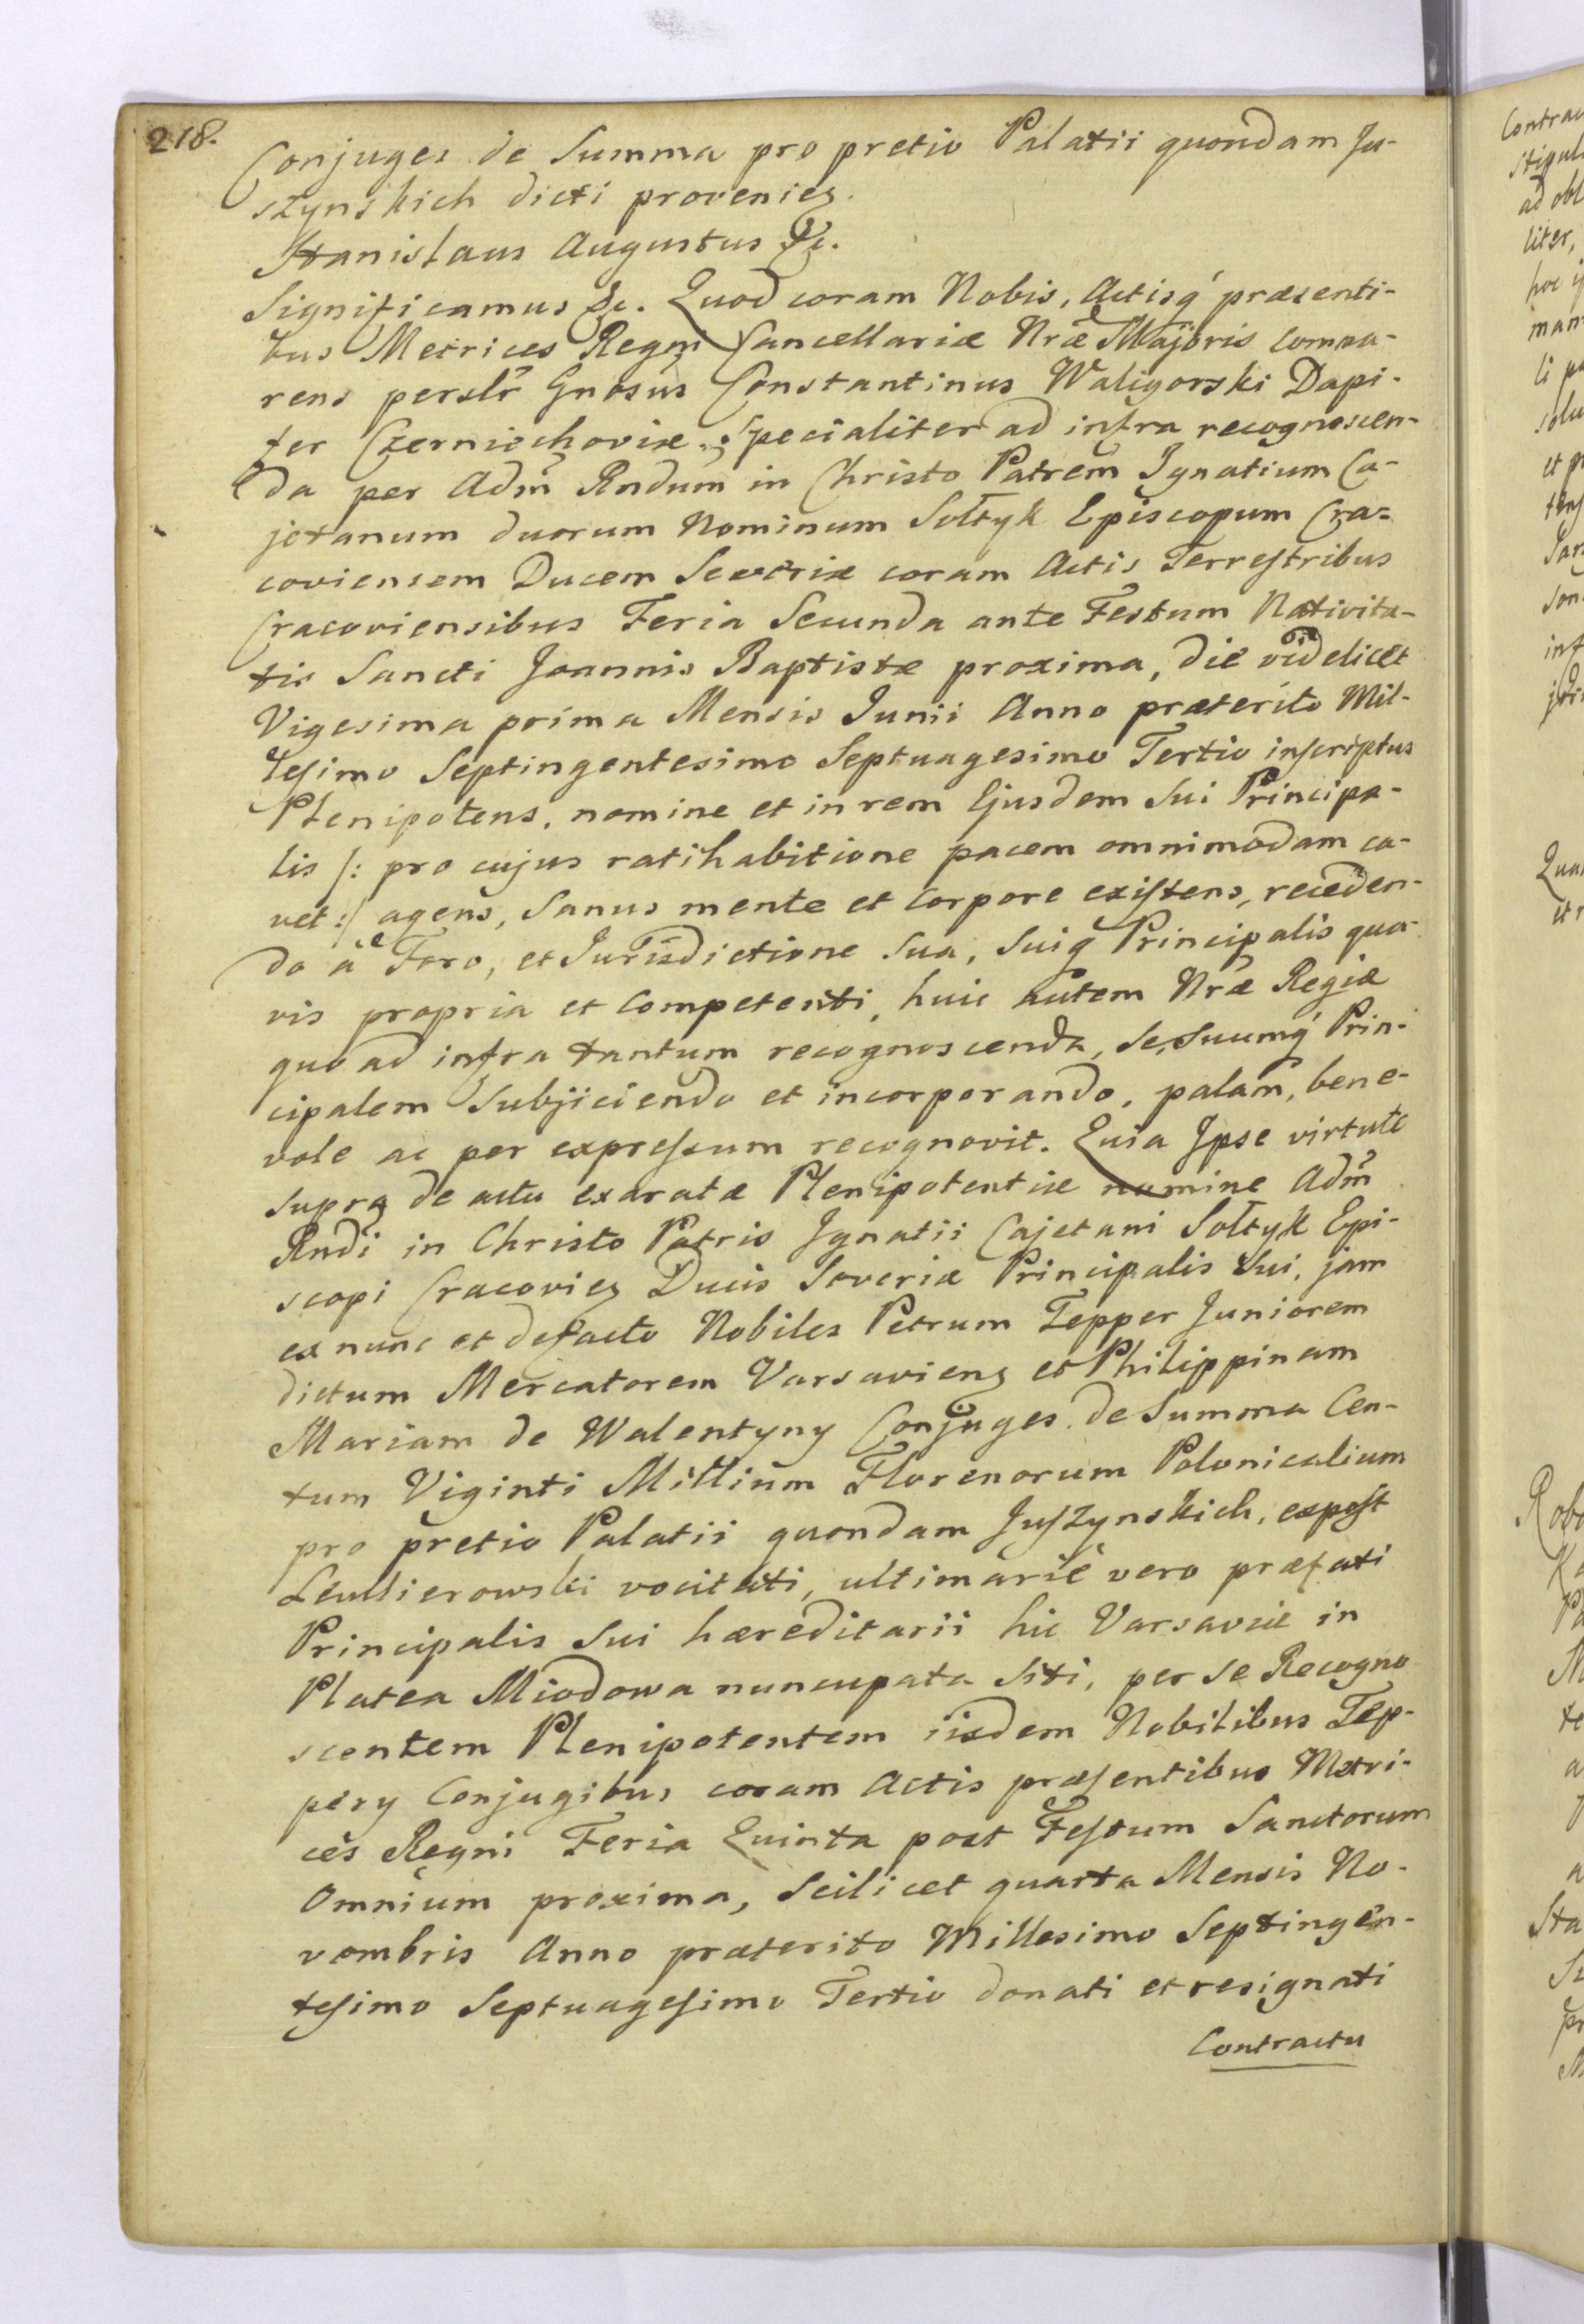 218.
Conjuges de Summa pro pretio Palatii quondam Ju-
szynskich dicti provenien̄.
Stanislaus Augustus &c.
Significamus &c. Quod coram Nobis, Actisq́ præsenti-
bus Metrices Regni Cancellariæ Nræ Majoris compa-
rens perslr̃ Gnosus Constantinus Waligorski Dapi-
fer Czerniechoviæ. Specialiter ad infra recognoscen-
da per Adm̃ Rndum in Christo Patrem Ignatium Ca-
jetanum duorum Nominum Sołtyk Episcopum Cra-
coviensem Ducem Severiæ coram Actis Terrestribus
Cracoviensibus Feria Secunda ante Festum Nativita-
tis Sancti Joannis Baptistæ proxima, die videlicet
Vigesima prima Mensis Junii Anno præterito Mil-
lesimo Septingentesimo Septuagesimo Tertio inscriptus
Plenipotens, nomine et in rem Ejusdem Sui Principa-
lis /: pro cujus ratihabitione pacem omnimodam ca-
vet :/ agens, Sanus mente et Corpore existens, receden-
do à Foro, et Jurisdictione Sua, Suiq́ Principalis qua-
vis propria et Competenti, huic autem Nræ Regiæ
quo ad infra tantum recognoscenda, Se, Suumq́ Prin-
cipalem Subjiciendo et incorporando, palam, bene-
vole ac per expressum recognovit. Quia Ipse virtute
supra de actu exaratæ Plenipotentiæ nomine Adm̃
Rndi in Christo Patris Ignatii Cajetani Sołtyk Epi-
scopi Cracovien̄ Ducis Severiæ Principalis Sui, jam
ex nunc et defacto Nobiles Petrum Tepper Juniorem
dictum Mercatorem Varsavien̄ et Philippinam
Mariam de Walentyny Conjuges. de Summa Cen-
tum Viginti Millium Florenorum Polonicalium
pro pretio Palatii quondam Juszynskich, expost
Leullierowski vocitati, ultimariè vero præfati
Principalis Sui hæreditarii hic Varsaviæ in
Platea Miodowa nuncupata Siti, per se Recogno
scentem Plenipotentem iisdem Nobilibus Tep-
pery Conjugibus coram Actis præsentibus Metri-
ces Regni Feria Quinta post Festum Sanctorum
Omnium proxima, Scilicet quarta Mensis No-
vembris Anno præterito Millesimo Septingen-
tesimo Septuagesimo Tertio donati et resignati
Contractu